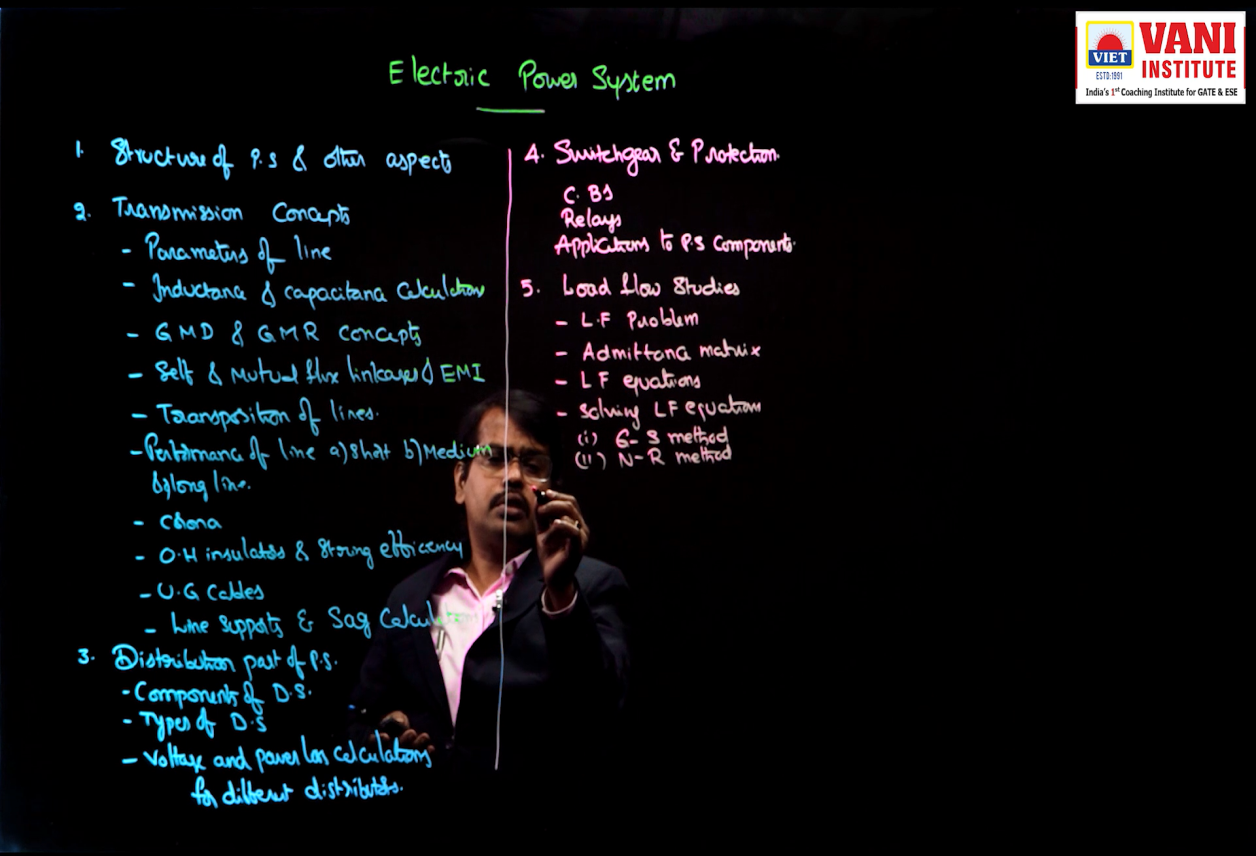 VIET
ESTD:1991
VANI
INSTITUTE
India's 1st Coaching Institute for GATE & ESE
Electric Power System
1. Structure of P.S & other aspects
2. Transmission Concepts
- Parameters of line
- Inductance & capacitance calculation
- GMD & GMR concepts
- Self & Mutual flux linkages & EMI
- Transposition of lines.
- Performance of line a) Short b) Medium
& long line.
- Corona
- O.H insulators & String efficiency
- U.G Cables
- Line supports & Sag Calculations
3. Distribution part of P.S.
- Components of D.S.
- Types of D.S
- Voltage and power loss calculations
for different distributors.
4. Switchgear & Protection.
C.BS
Relays
Applications to P.S Components.
5. Load flow Studies
- L.F Problem
- Admittance matrix
- LF equations
- Solving LF equations
(i) G-S method
(ii) N-R method